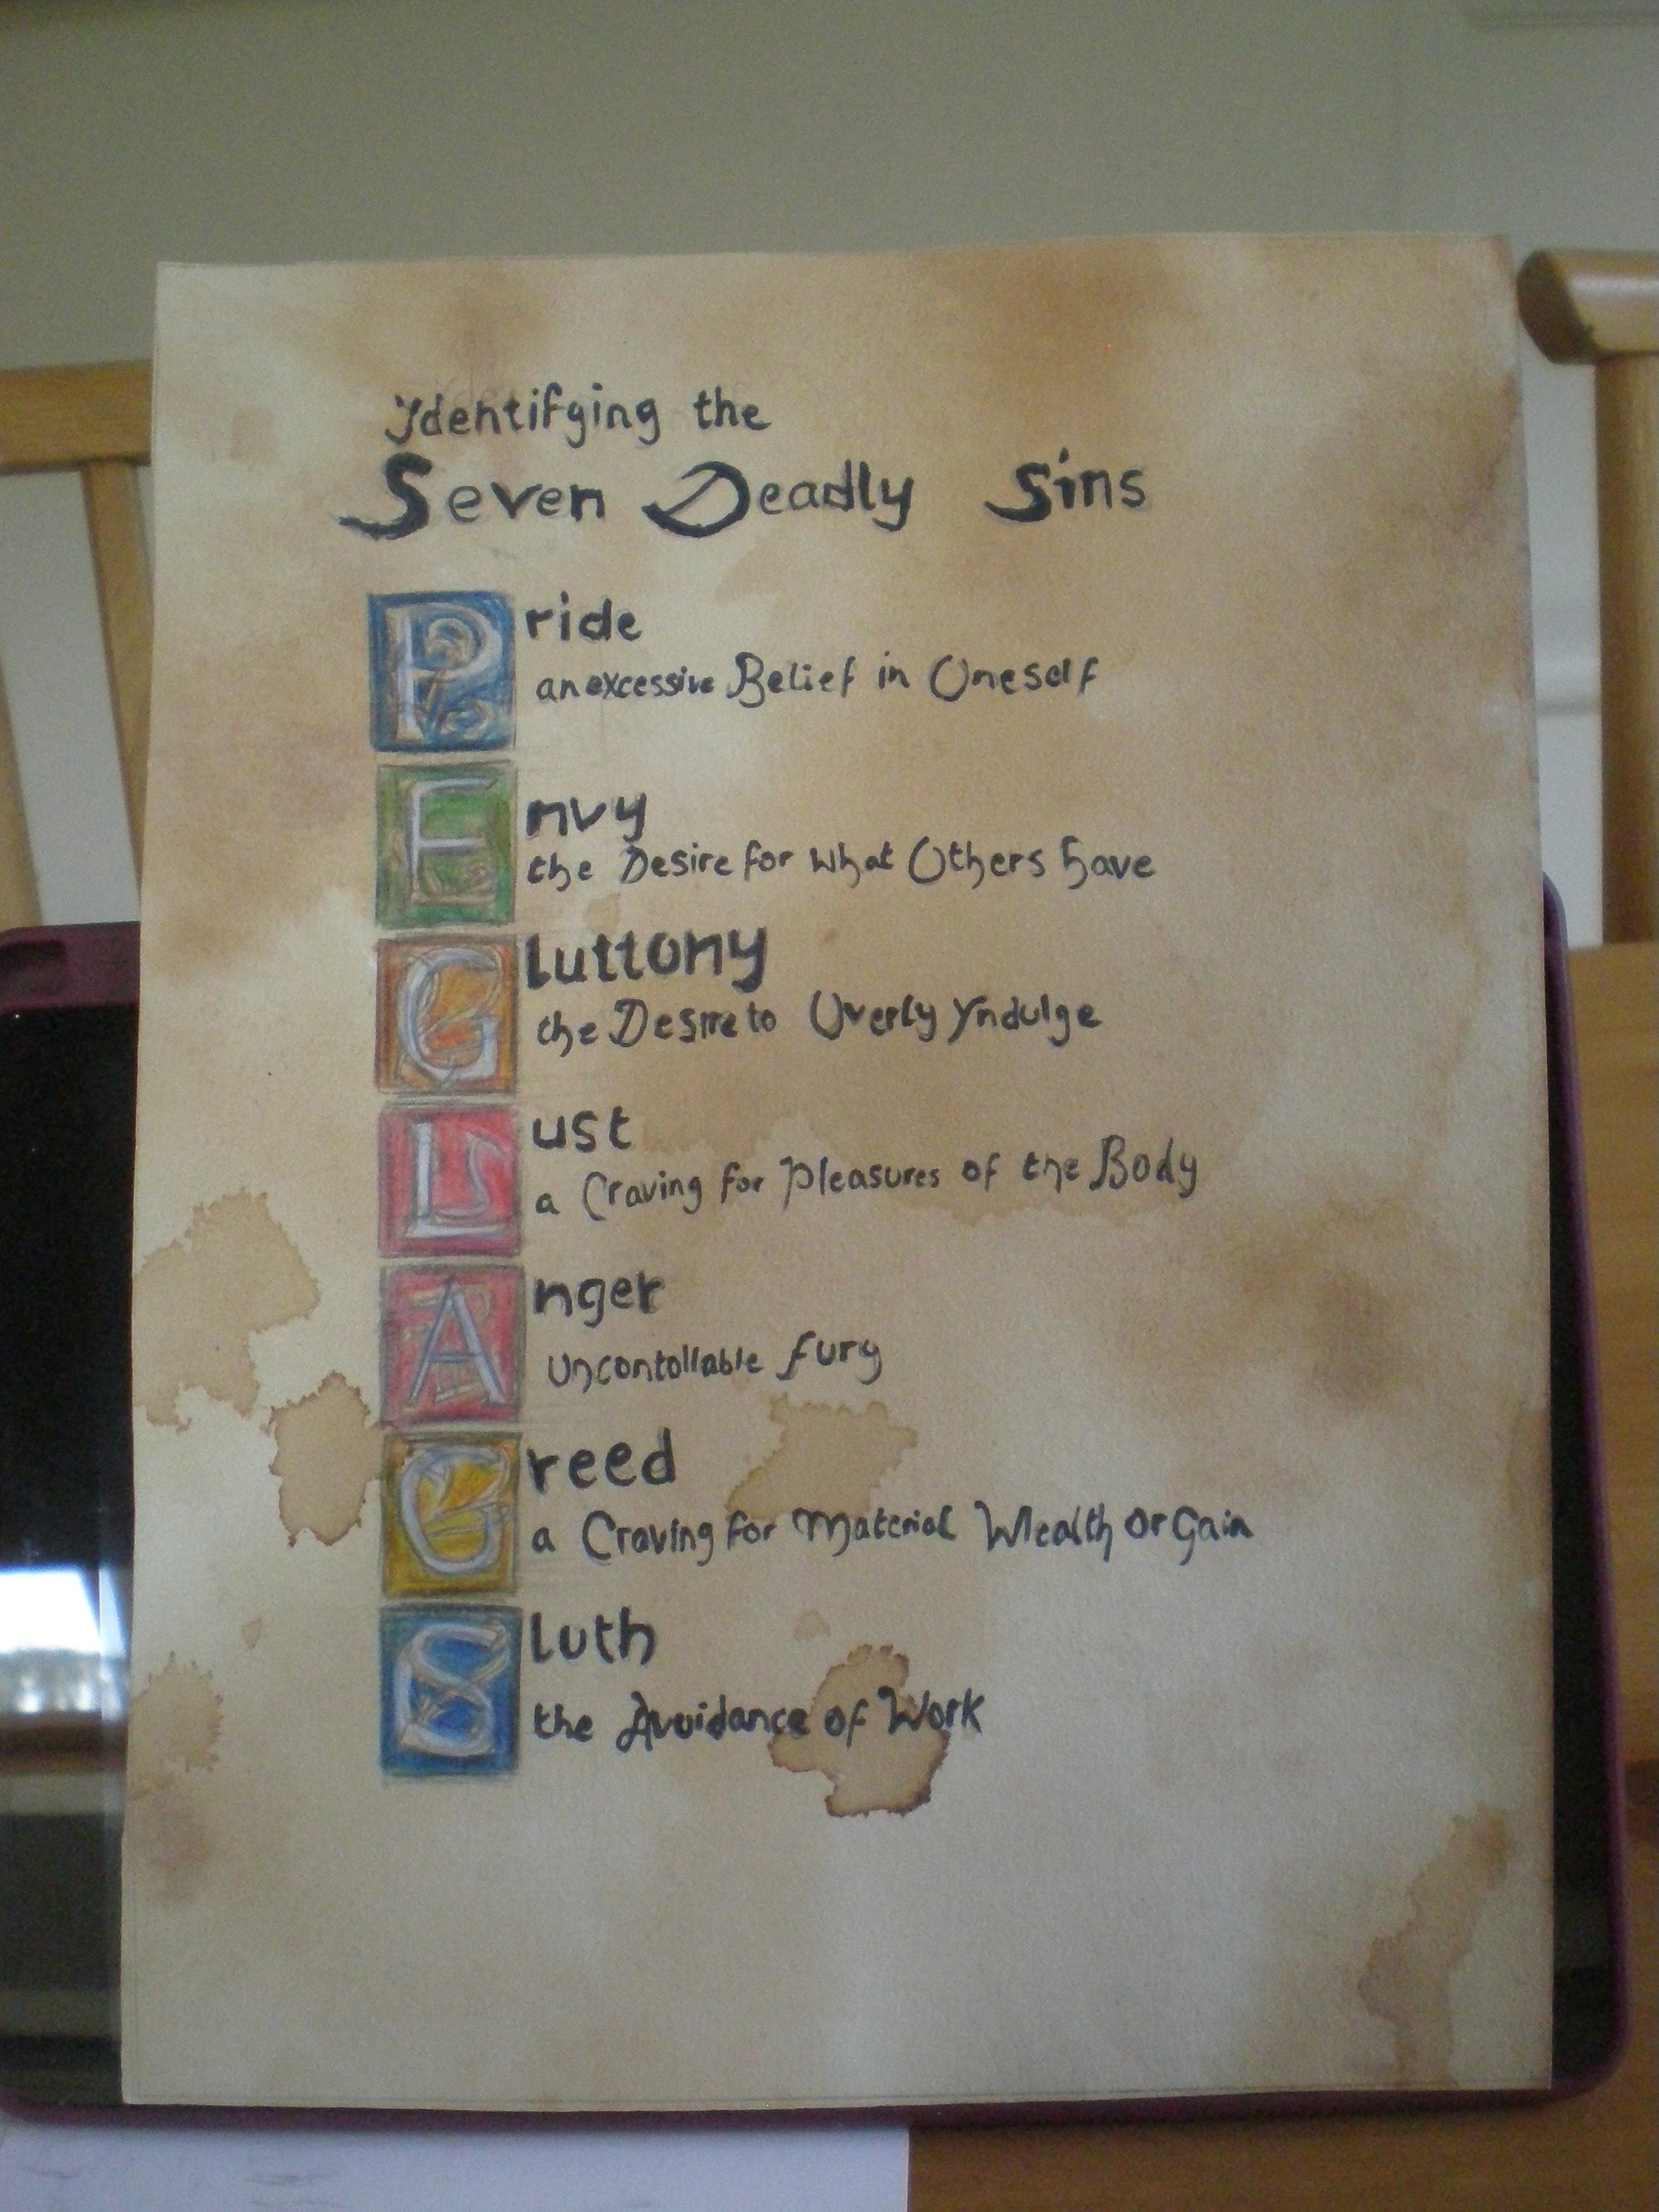 Identifying the
Seven Deadly Sins
Pride
an excessive Belief in Oneself
Envy
the Desire for what Others have
Gluttony
the Desire to Overly Yndulge
Lust
a Craving for Pleasures of the Body
Anger
Uncontollable fury
Greed
a Craving for Material Wlealth or Gain
Sluth
the Avoidance of Work